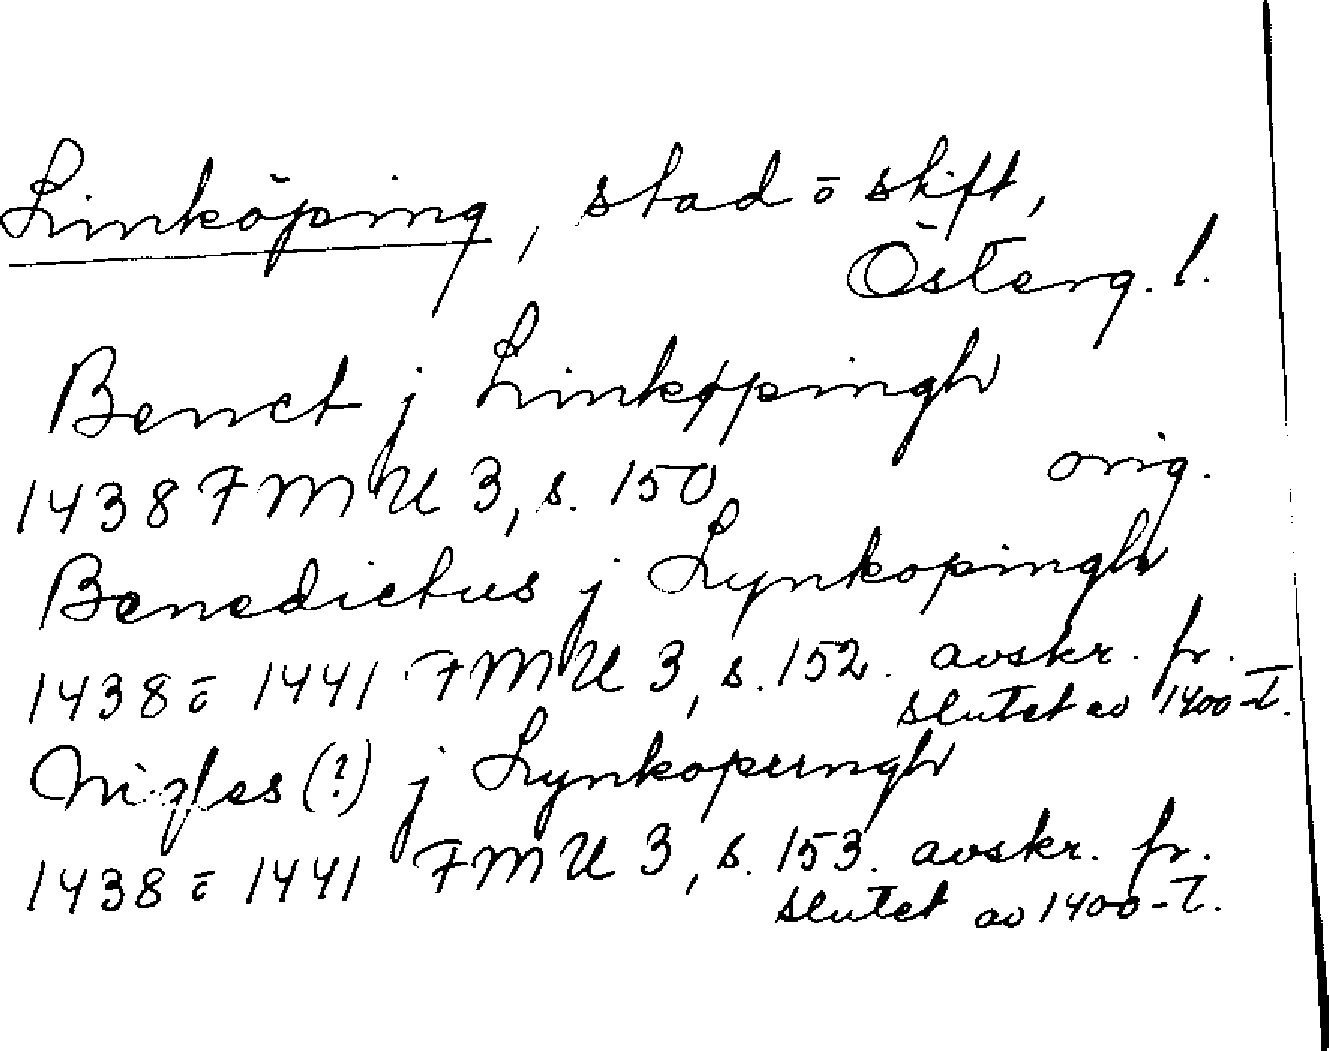 Linköping, stad ō stift,
Österg. l.
Benct j Linkøpingh
1438 FMU 3, s. 150 orig.
Benedictus j Lynkopingh
1438 ō 1441 FMU 3, s. 152. avskr. fr.
slutet av 1400-t.
Nigles (?) j Lynkopungh
1438 ō 1441 FMU 3, s. 153. avskr. fr.
slutet av 1400-t.